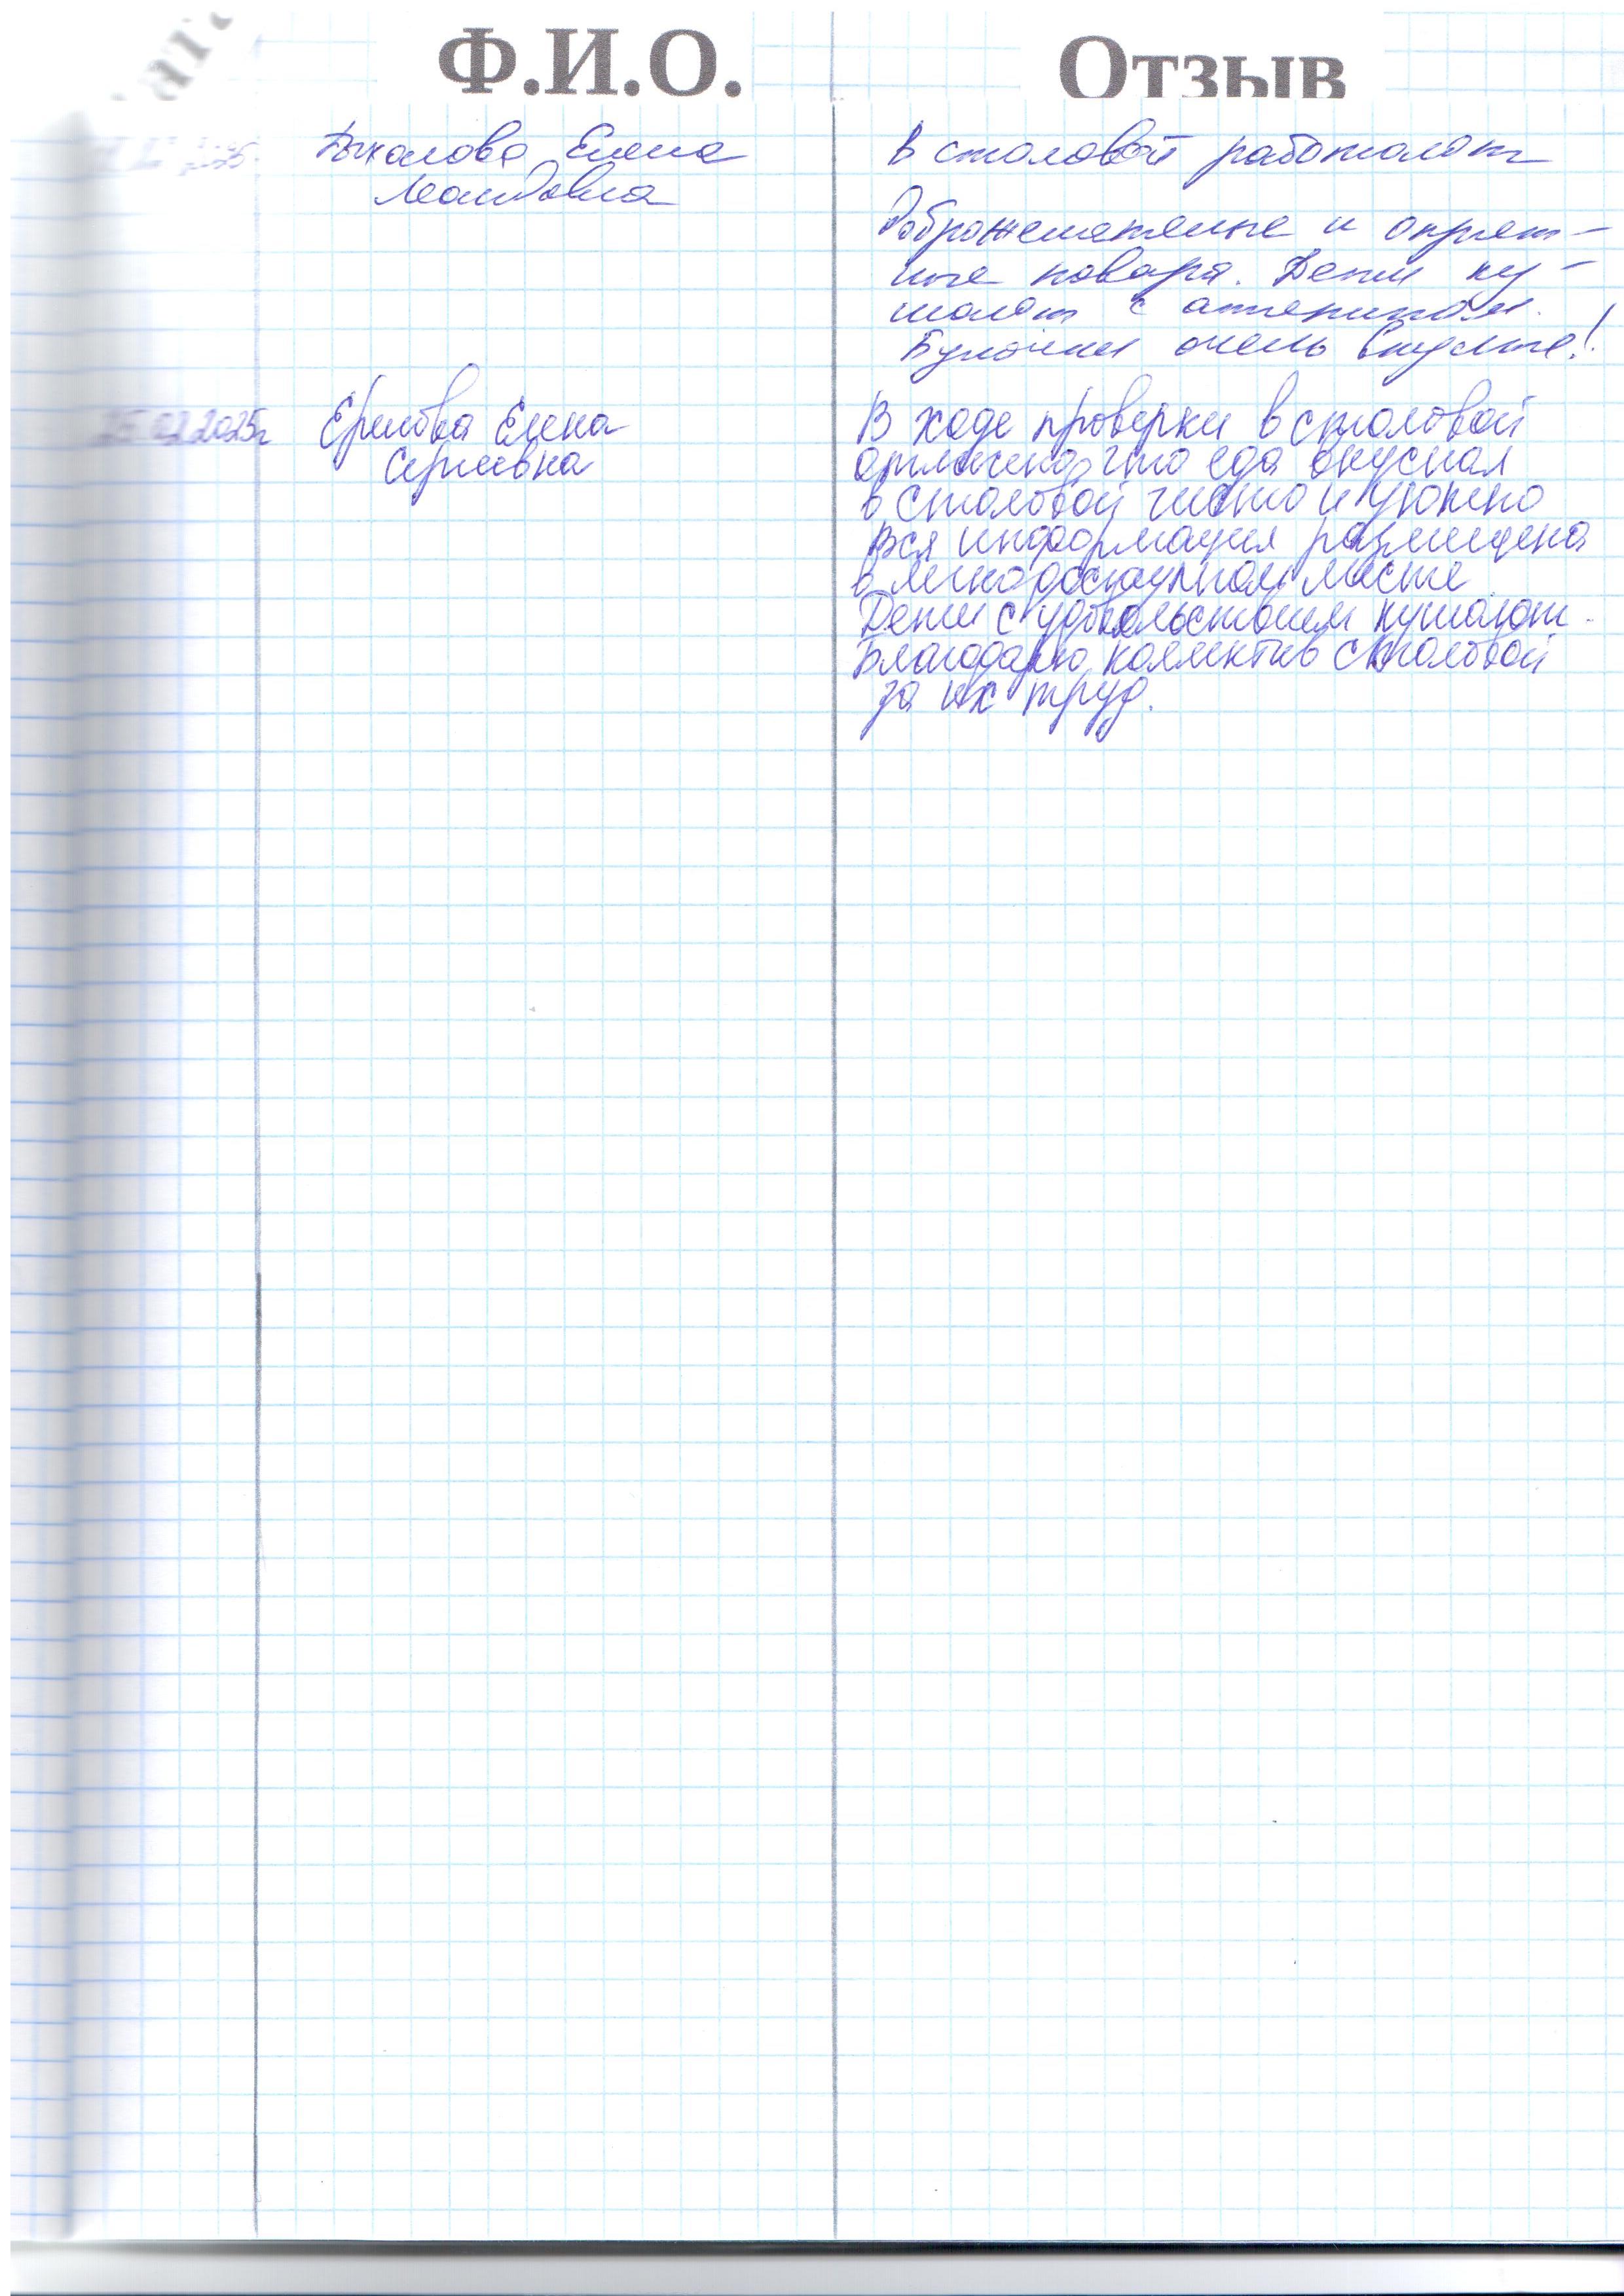 Ф.И.О. Отзыв
Елена
В столовой работают
доброжелательные и опрят-
ные повара. Дети ку-
шают с аппетитом.
Булочки очень вкусные!
25.02.2025г Ершова Елена
Сергеевна
В ходе проверки в столовой
отмечено, что еда вкусная
в столовой чисто и уютно
Вся информация размещена
в легкодоступном месте
Дети с удовольствием кушают.
Благодарю коллектив столовой
за их труд.